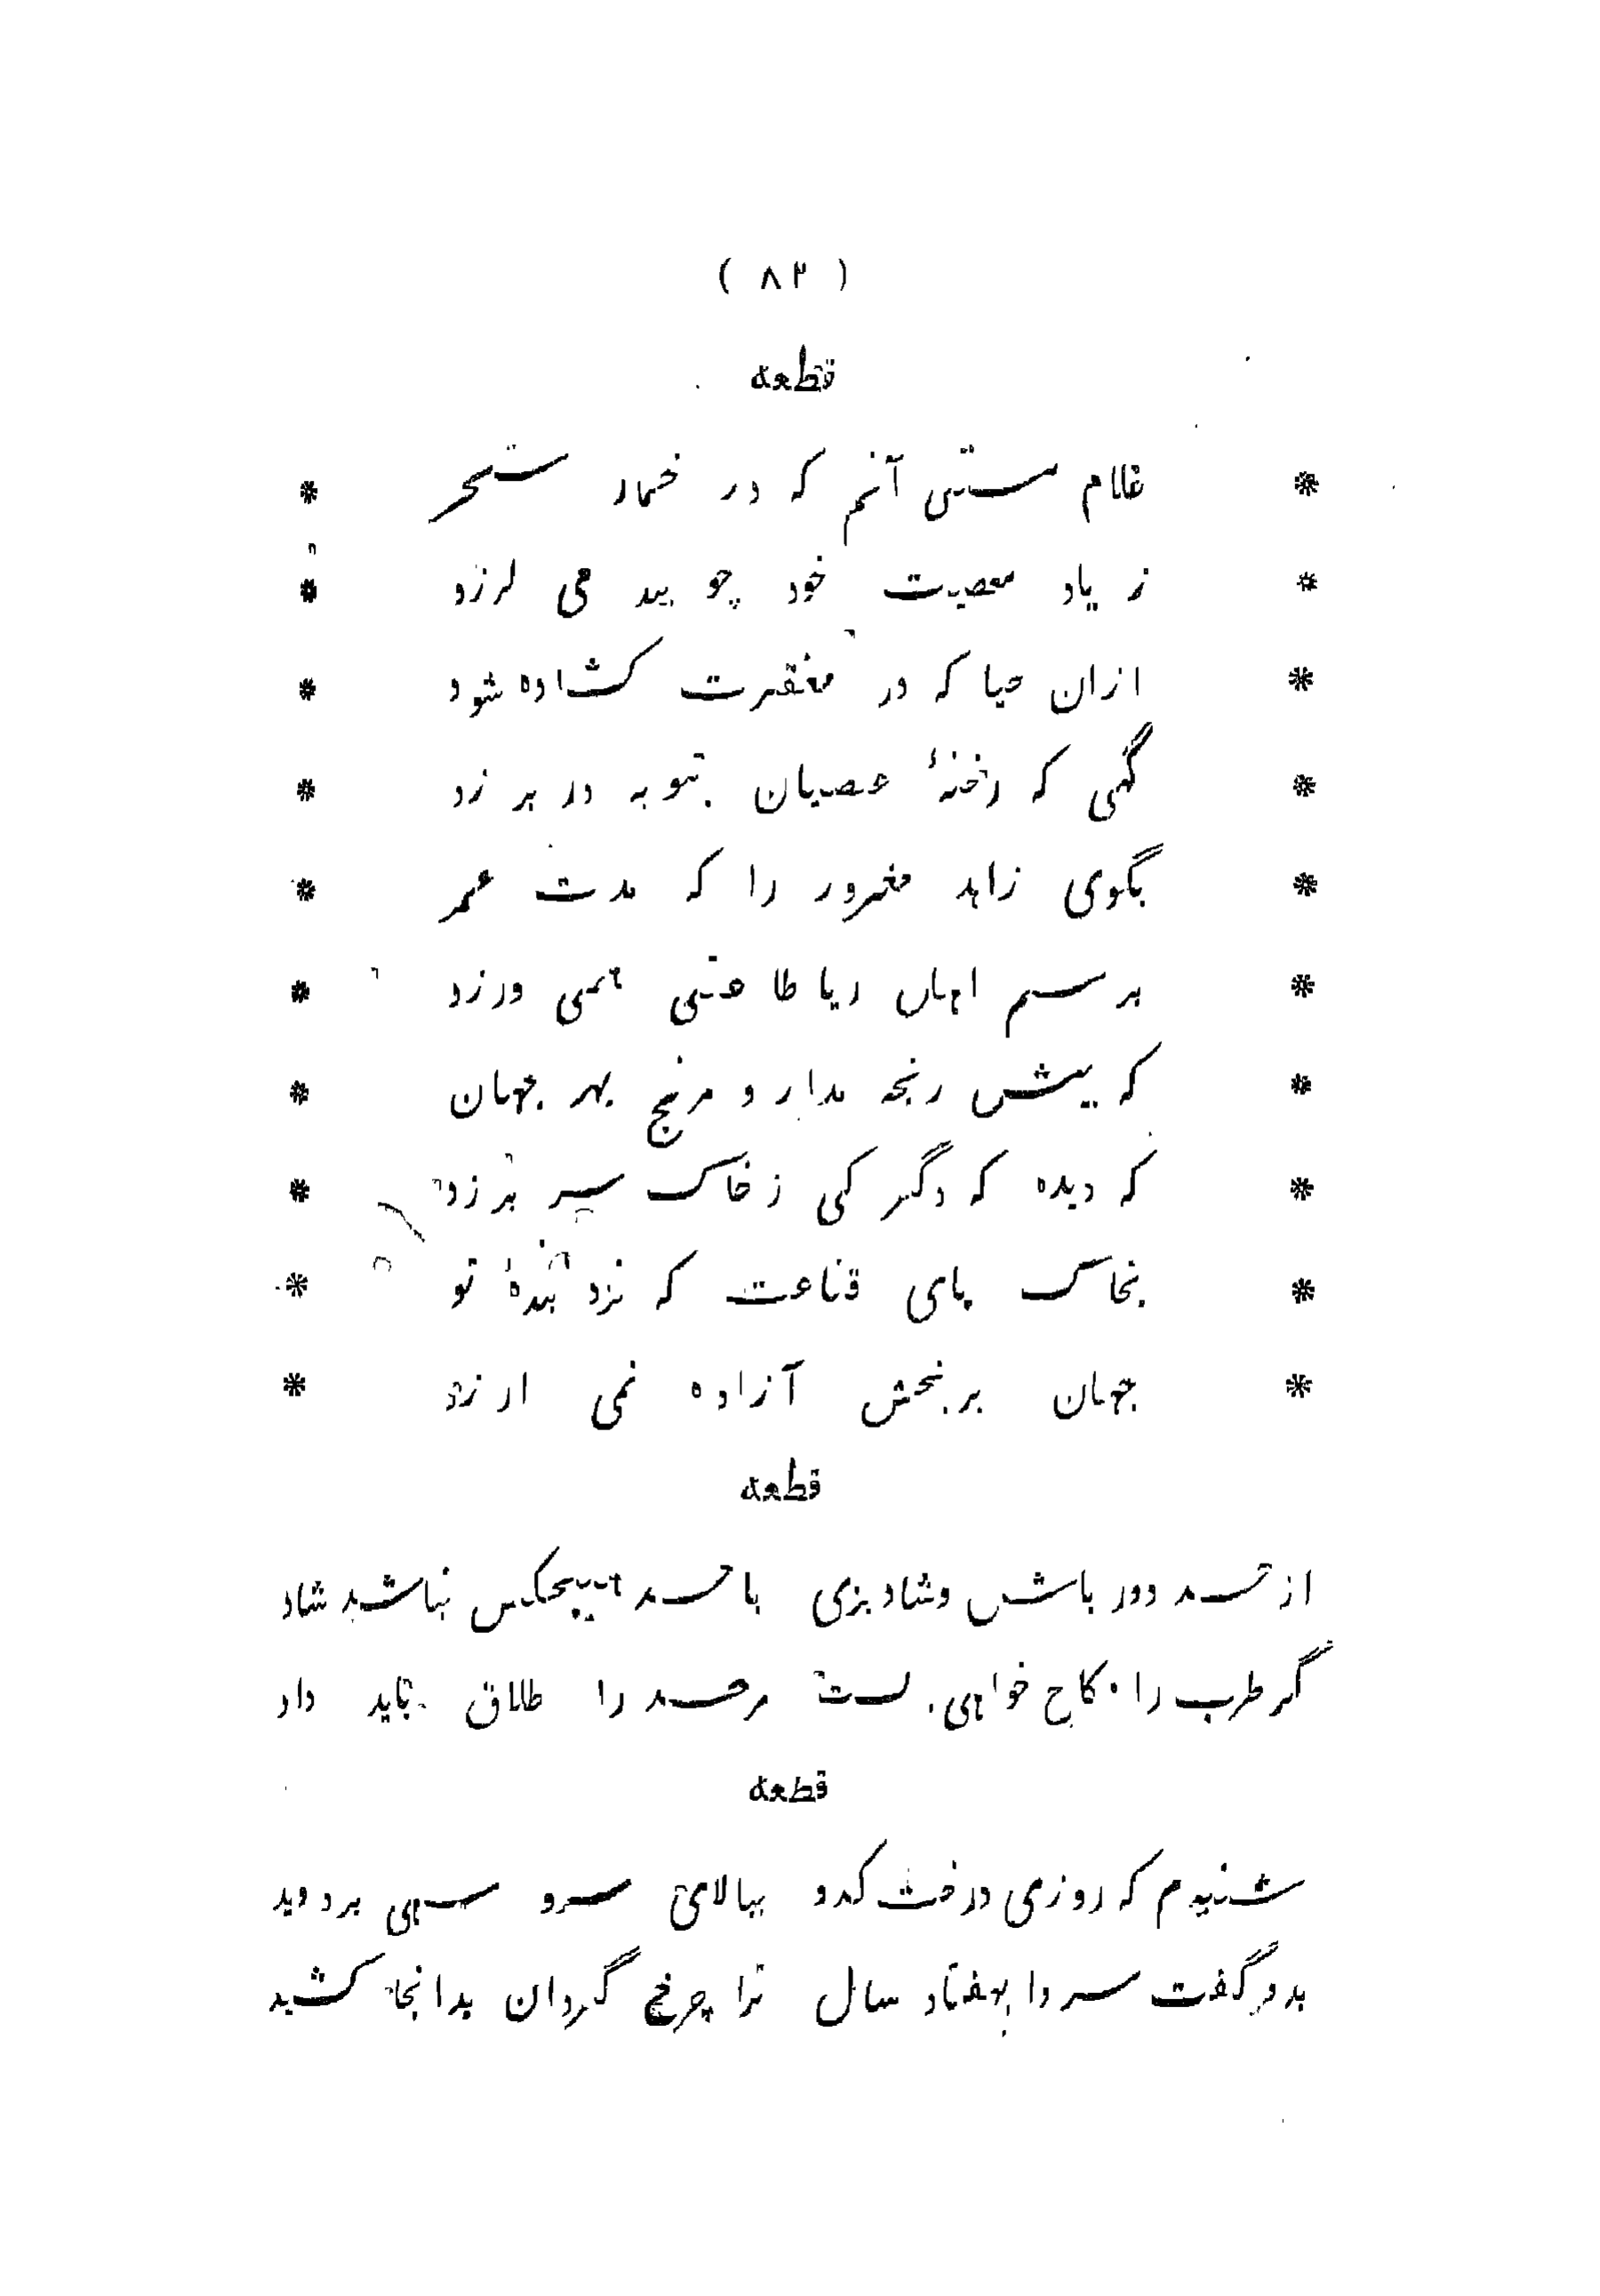 ( ۸۳ )
قطعه
* غلام مستی آنم که در خمار سحر *
* ز یاد معصیت خود چو بید می لرزد *
* ازان حیا که در مغفرت کشاده شود *
* گهی که رخنهٔ عصیان بتوبه در بر زد *
* بگوی زاهد مغرور را که مدت عمر *
* برسم اهل ریا طاعتی همی ورزد *
* که بیش رنجه مدار و مرنج بهر جهان *
* که دیده که دگر کی ز خاک سر بر زد *
* بخاک پای قناعت که نزد بندهٔ تو *
* جهان برنجش آزاده نمی ارزد *
قطعه
از حسد دور باش و شاد بزی با حسد هیچکس نباشد شاد
گر طرب را نکاح خواهی بست مر حسد را طلاق باید داد
قطعه
شنیدم که روزی درخت کدو ببالای سرو سهی بر دوید
بدو گفت سروا بهفتاد سال ترا چرخ گردان بدانجا کشید